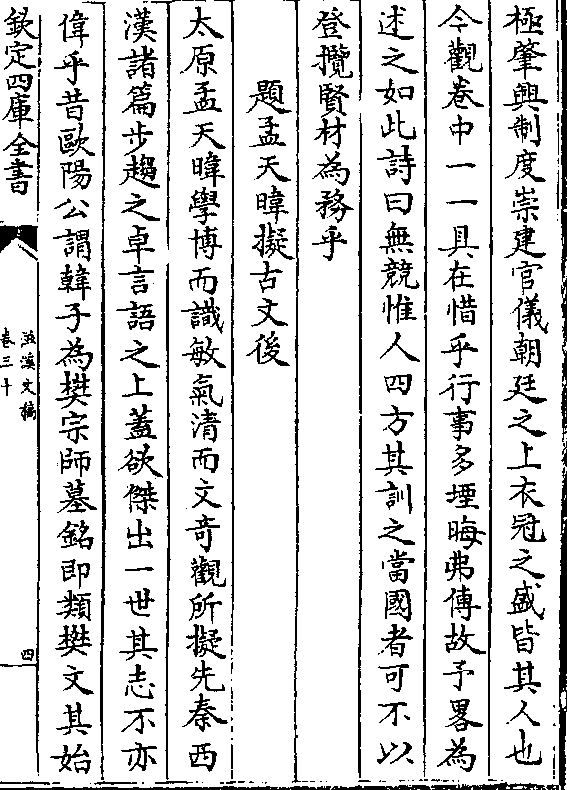 極肇興制度崇建官儀朝廷之上衣冠之盛皆其人也
今觀卷中一一具在惜乎行事多堙晦弗傳故予畧為
述之如此詩曰無競惟人四方其訓之當國者可不以
登攬賢材為務乎
題孟天暐擬古文後
太原孟天暐學博而識敏氣清而文奇觀所擬先秦西
漢諸篇步趨之卓言語之上蓋欲傑出一世其志不亦
偉乎昔歐陽公謂韓子為樊宗師墓銘即類樊文其始
欽定四庫全書
滋溪文稿
卷三十
四